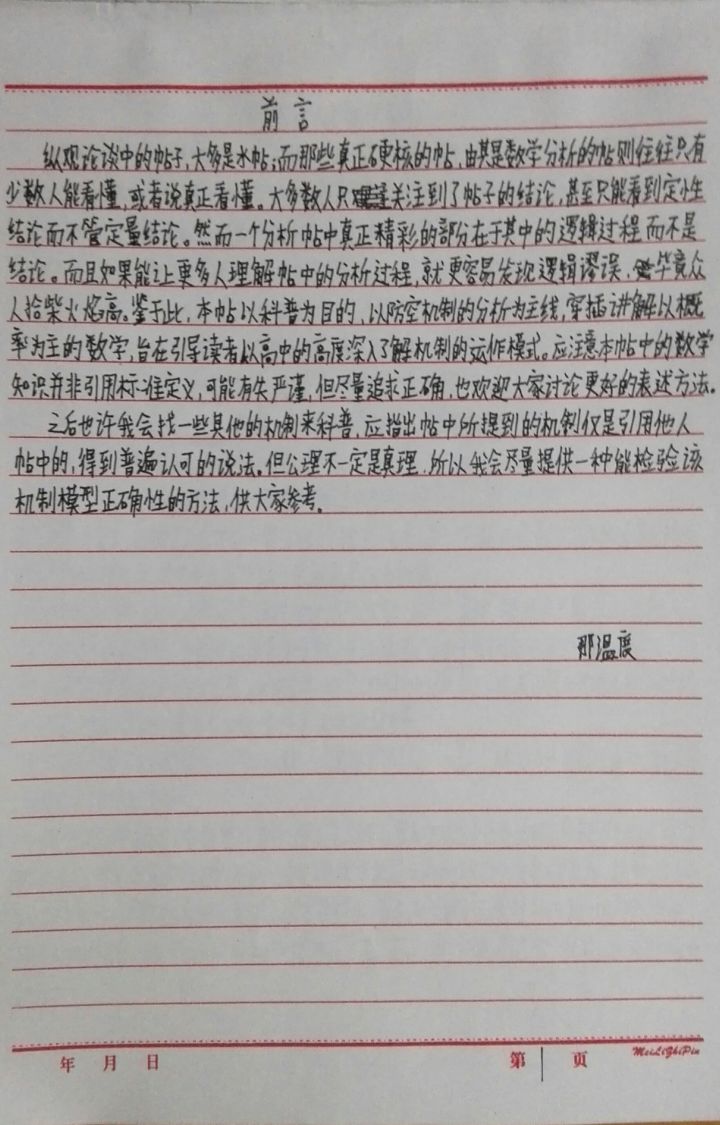 前言
纵观论谈中的帖子,大多是水帖;而那些真正硬核的帖,由其是数学分析的帖则往往只有
少数人能看懂,或者说真正看懂。大多数人只关注到了帖子的结论,甚至只能看到定性
结论而不管定量结论。然而一个分析帖中真正精彩的部分在于其中的逻辑过程而不是
结论。而且如果能让更多人理解帖中的分析过程,就更容易发现逻辑谬误,毕竟众
人拾柴火焰高。鉴于此,本帖以科普为目的,以防空机制的分析为主线,穿插讲解以概
率为主的数学,旨在引导读者以高中的高度深入了解机制的运作模式。应注意本帖中的数学
知识并非引用标准定义,可能有失严谨,但尽量追求正确,也欢迎大家讨论更好的表述方法。
之后也许我会找一些其他的机制来科普,应指出帖中所提到的机制仅是引用他人
帖中的,得到普遍认可的说法。但公理不一定是真理,所以我会尽量提供一种能检验该
机制模型正确性的方法,供大家参考。
那温度
年 月 日 第 页 MeiLiZhiPin